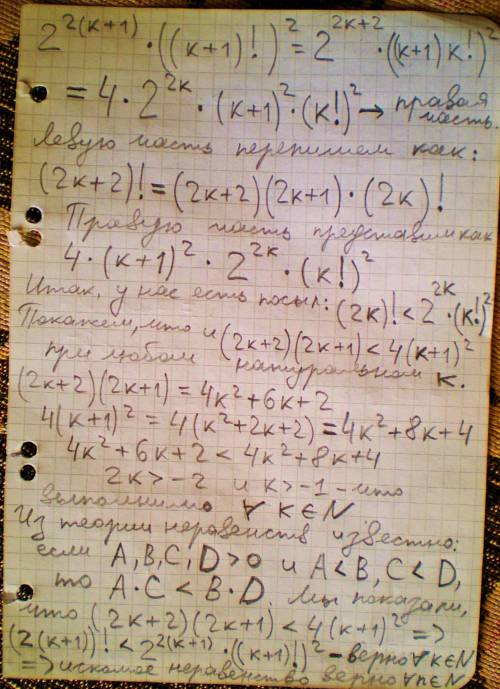 2^{2(k+1)} · ((k+1)!)^2 = 2^{2k+2} · ((k+1) k!)^2
= 4 · 2^{2k} · (k+1)^2 · (k!)^2 → правая часть.
Левую часть перепишем как:
(2k+2)! = (2k+2)(2k+1) · (2k)!
Правую часть представим как
4 · (k+1)^2 · 2^{2k} · (k!)^2
Итак, у нас есть посыл: (2k)! < 2^{2k} · (k!)^2
Покажем, что и (2k+2)(2k+1) < 4(k+1)^2
при любом натуральном k.
(2k+2)(2k+1) = 4k^2+6k+2
4(k+1)^2 = 4(k^2+2k+2) = 4k^2+8k+4
4k^2+6k+2 < 4k^2+8k+4
2k > -2 и k > -1 - что
выполнимо ∀ k ∈ N
Из теории неравенств известно:
если A, B, C, D > 0 и A < B, C < D,
то A · C < B · D. Мы показали,
что (2k+2)(2k+1) < 4(k+1)^2 =>
(2(k+1))! < 2^{2(k+1)} · ((k+1)!)^2 - верно ∀ k ∈ N
=> искомое неравенство верно ∀ n ∈ N